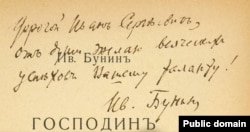 Дорогой Иванъ Сергѣевичъ,
отъ души желаю всяческихъ
Ив. Бунинъ
успѣховъ Вашему таланту!
Ив. Бунин
ГОСПОДИНЪ
Public domain